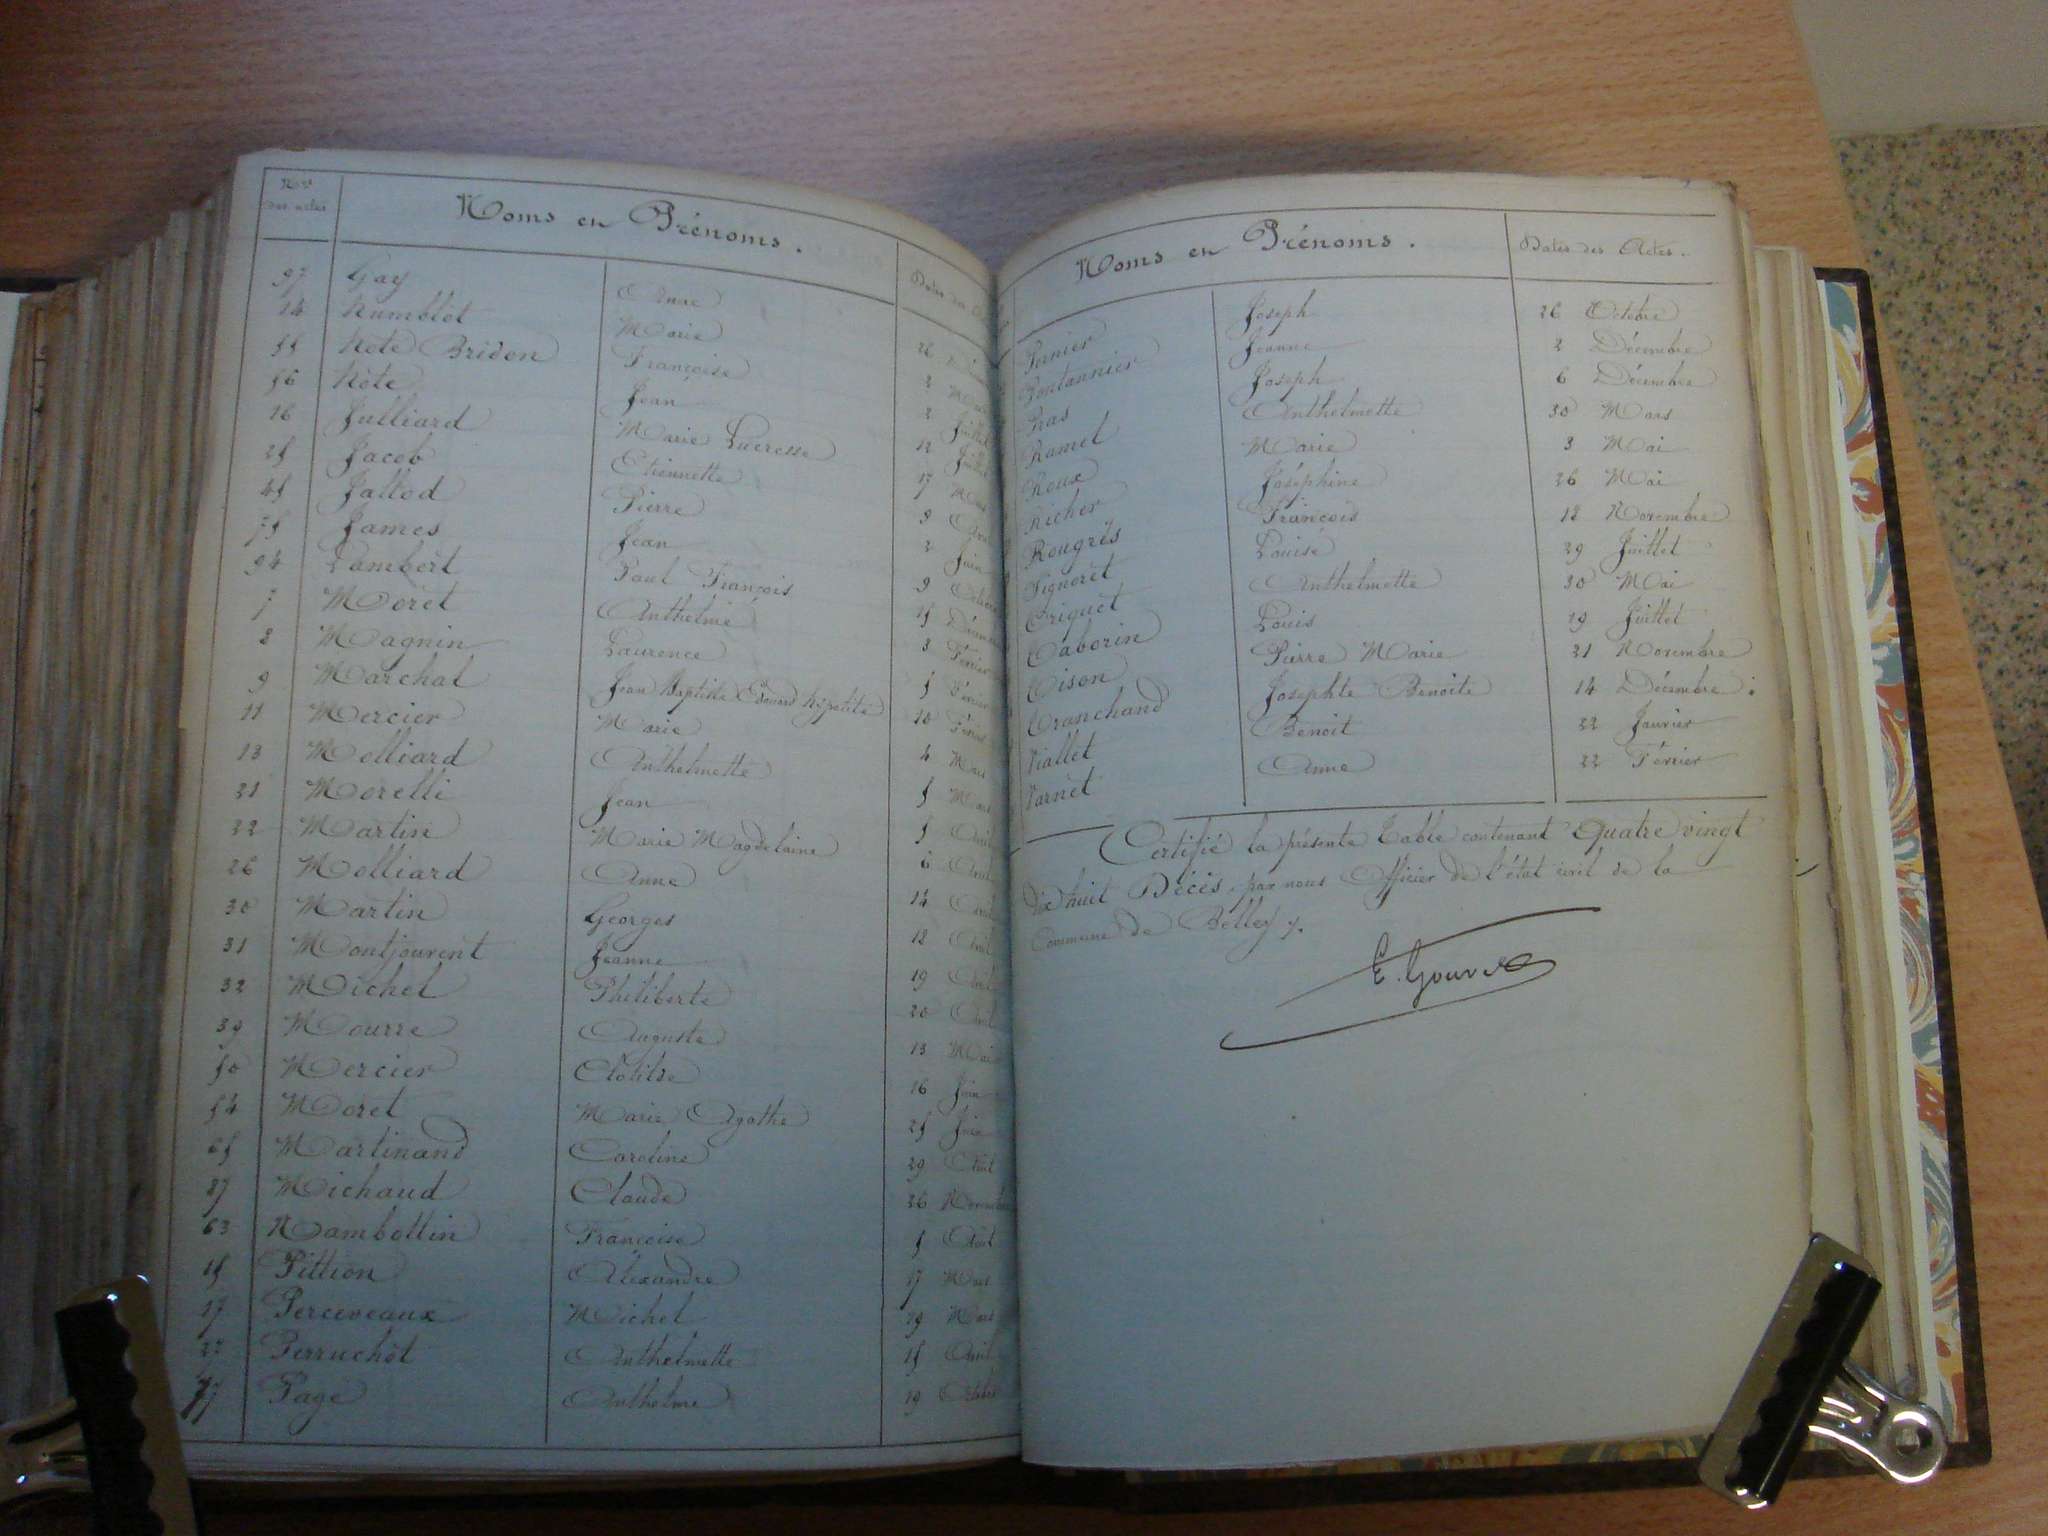 Nos
des actes
Noms et Prénoms.
Dates des
97 Gay Anne 26
14 Humblot Marie 2
55 Hote Bridon Françoise 2 Juillet
56 Hote Jean 12 Juillet
16 Julliard Marie Lucresse 17 Mars
25 Jacob Etiennette 8
45 Jallod Pierre 2 Juin
75 James Jean 9
94 Lambert Paul François 15
7 Moret Anthelme 3 Février
8 Magnin Laurence 5 Février
9 Marchal Jean Baptiste Edouard Hipolite 10
11 Mercier Marie 4 Mars
13 Molliard Anthelmette 5 Mars
21 Morelli Jean 5 Avril
22 Martin Marie Magdelaine 6 Avril
26 Molliard Anne 14 Avril
30 Martin Georges 18 Avril
31 Montjouvent Jeanne 19 Avril
32 Michel Philiberte 20 Avril
39 Mourre Auguste 13 Mai
50 Mercier Clotilde 16 Juin
54 Moret Marie Agathe 25 Juin
65 Martinand Caroline 29 Août
87 Michaud Claude 26 Novembre
63 Nambottin Françoise 5 Août
15 Pittion Alexandre 17 Mars
17 Perceveaux Michel 29 Mars
27 Perruchot Anthelmette 15 Avril
77 Page Anthelme 19
Noms et Prénoms.
Dates des Actes.
Pernier Joseph 26 Octobre
Pontannier Jeanne 2 Décembre
Pras Joseph 6 Décembre
Ramel Anthelmette 30 Mars
Roux Marie 3 Mai
Richer Joséphine 26 Mai
Rougrès François 12 Novembre
Signoret Louise 29 Juillet
Triquet Anthelmette 30 Mai
Taborin Louis 19 Juillet
Tison Pierre Marie 21 Novembre
Tranchand Josephte Benoite 14 Décembre.
Viallet Benoit 22 Janvier
Varnet Anne 22 Février
Certifié la présente Table contenant Quatre vingt
dix huit Décès par nous Officier de l'état civil de la
Commune de Belley